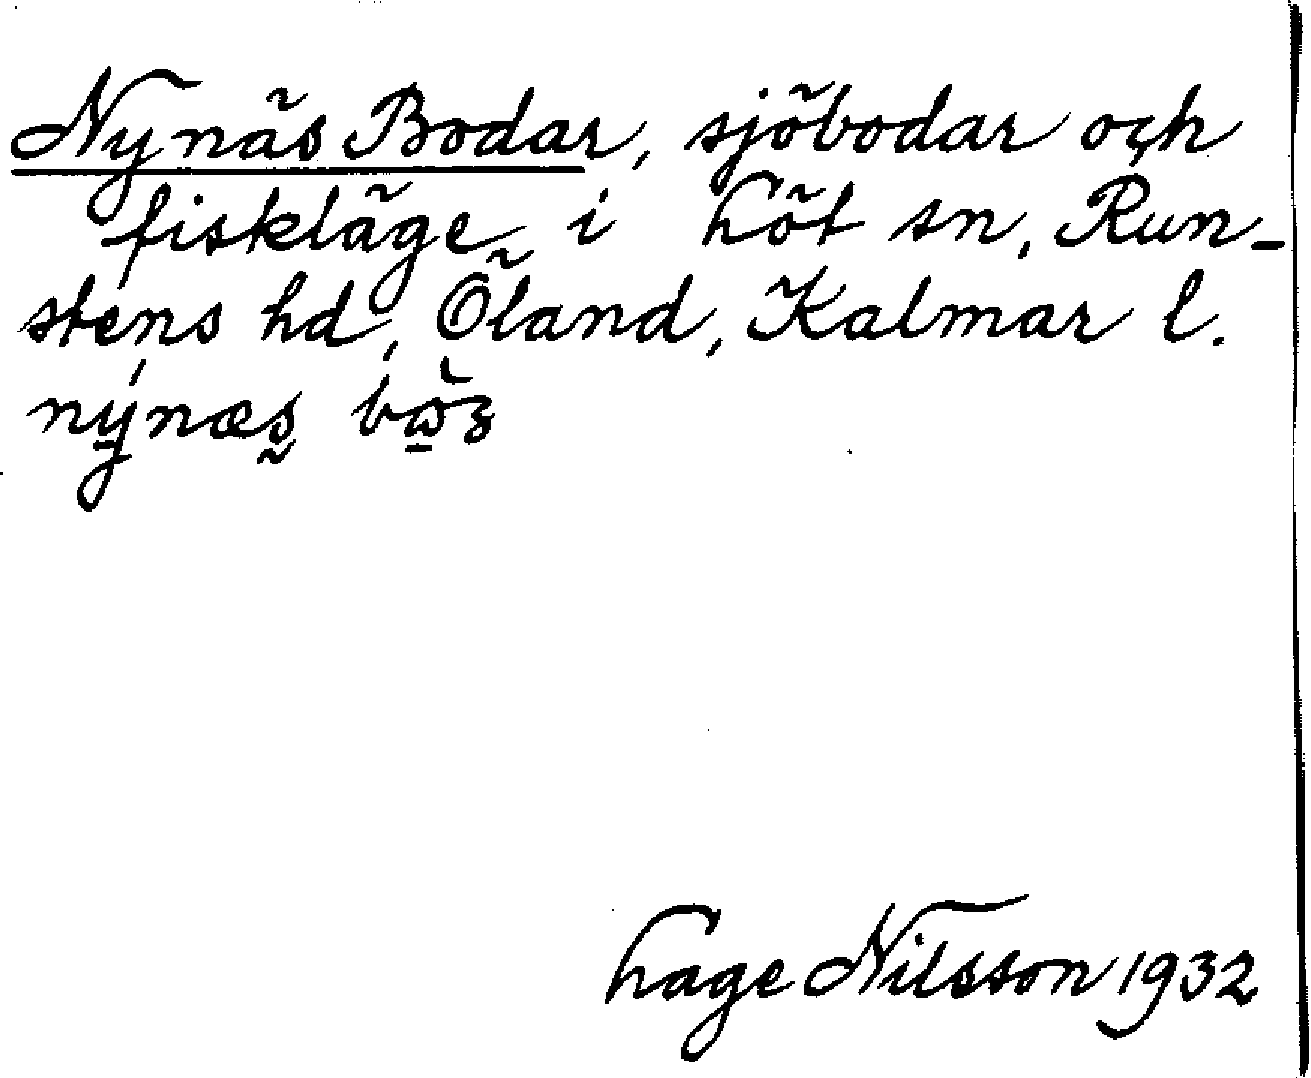 Nynäs Bodar, sjöbodar och
fiskläge i Löt sn, Run-
stens hd, Öland, Kalmar l.
nýnæs
Lage Nilsson 1932